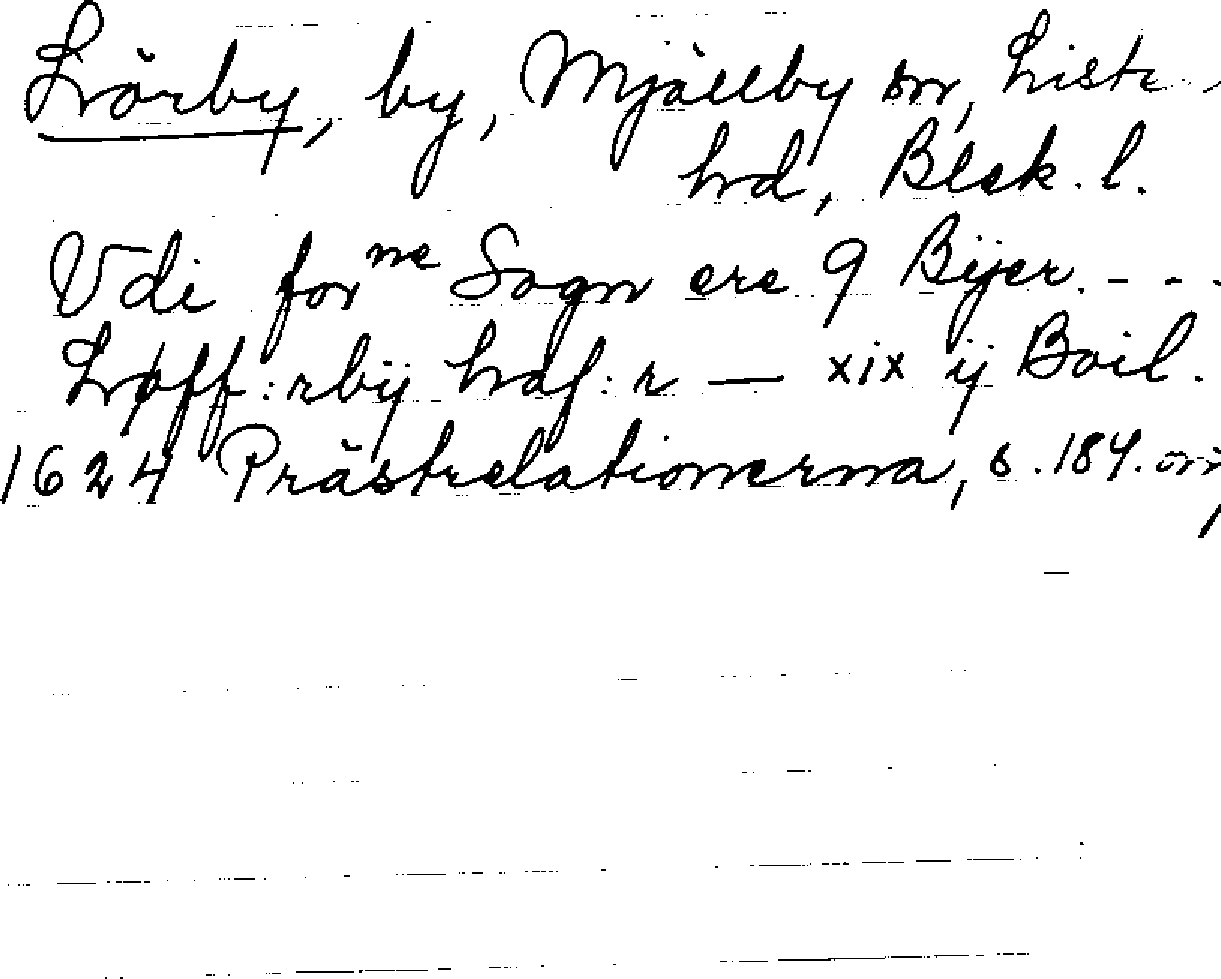 Lörby, by, Mjällby sn, Liste
hd, Blek. l.
Vdi forne Sogn ere 9 Bijer. - - -
Løff:rbÿ haf:r — xix ÿ Boil.
1624 Prästrelationerna, s. 184.